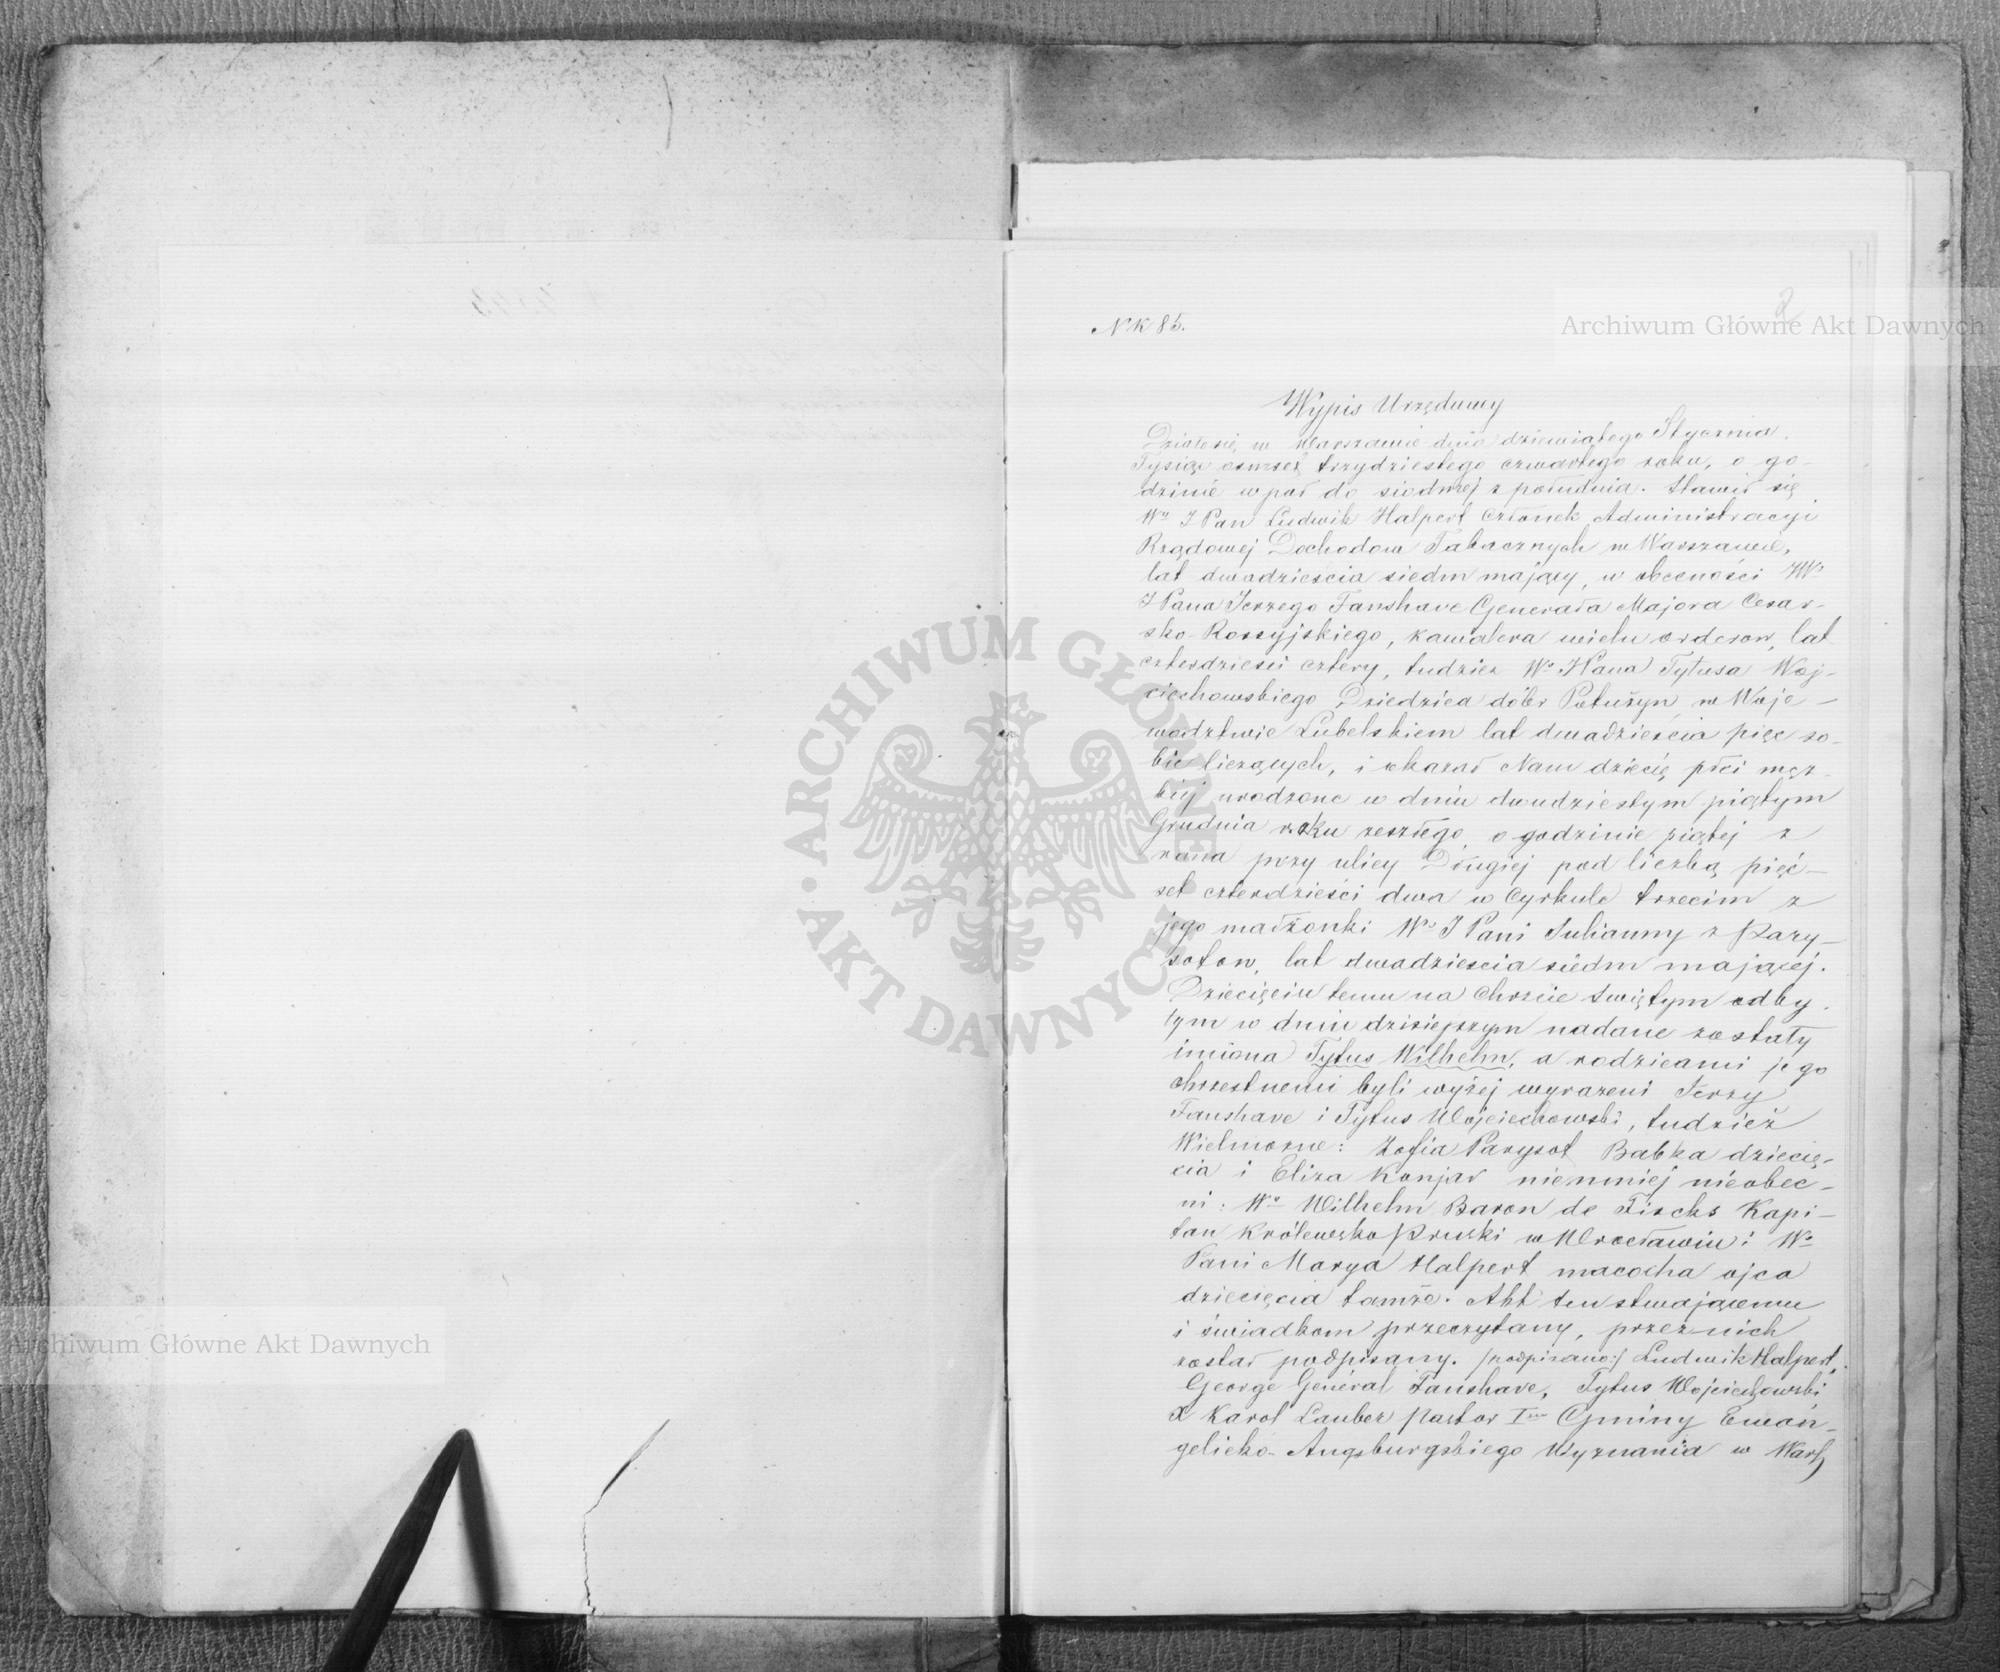 N K 85.
2
Archiwum Główne Akt Dawnych
Wypis Urzędowy
Działo się w Warszawie dnia dziewiątego Stycznia
Tysiąc osmset trzydziestego czwartego roku, o go-
dzinie wpół do siodmej z południa. Stawił się
Wny J Pan Ludwik Halpert Członek Administracyi
Rządowej Dochodow Tabacznych w Warszawie,
lat dwadzieścia siedm mający, w obecności JWo
J Pana Jerzego Fanshave Generała Majora Cesar-
sko-Rossyjskiego, kawalera wielu orderow, lat
czterdzieści cztery, tudzież Wo J Pana Tytusa Woj-
ciechowskiego Dziedzica dóbr Poturzyn w Woje-
wodztwie Lubelskiem lat dwadzieścia pięc so-
bie liczących, i okazał Nam dziecię płci męz-
kiej urodzone w dniu dwudziestym piątym
Grudnia roku zeszłego o godzinie piątej z
rana przy ulicy Długiej pod liczbą pięć-
set czterdzieści dwa w Cyrkule trzecim z
jego małżonki Wej J Pani Julianny z Pary-
sotow, lat dwadzieścia siedm mającej.
Dziecięciu temu na Chrzcie Swiętym odby-
tym w dniu dzisiejszym nadane zostały
imiona Tytus Wilhelm, a rodzicami jego
chrzestnemi byli wyżej wyrażeni Jerzy
Fanshave i Tytus Wojciechowski, tudzież
Wielmożne: Zofia Parysot Babka dziecię-
cia i Eliza Konjar niemniej nieobec-
ni: Wy Wilhelm Baron de Fircks Kapi-
tan Królewsko Pruski w Wrocławiu i Wa
Pani Marya Halpert macocha ojca
dziecięcia tamże. Akt ten stwającemu
i świadkom przeczytany, przez nich
został podpisany. /podpisano:/ Ludwik Halpert,
George Général Fanshave, Tytus Wojciechowski
X Karol Lauber Pastor Iszy Gminy Ewan-
gelicko-Augsburgskiego Wyznania w Warsz
ARCHIWUM GŁÓWNE AKT DAWNYCH
Archiwum Główne Akt Dawnych